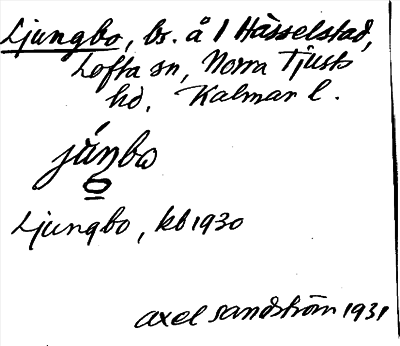 Ljungbo, bs. å 1 Hässelstad,
Lofta sn, Norra Tjusts
hd, Kalmar l.
júŋbo
o
Ljungbo, kb 1930
Axel Sandström 1931